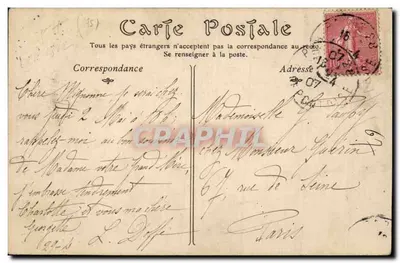 Carte Postale
Tous les pays étrangers n'acceptent pas la correspondance au recto.
Se renseigner à la poste.
Correspondance
Adresse
15
07
Chère Mignonne je serai chez
vous jeudi 2 Mai
rappelez-moi au bon souvenir
de Madame votre Grand-Mère,
j'embrasse tendrement
Charlotte et vous ma chère
Georgette
L. Doffe
Mademoiselle
chez Monsieur Guérin
67 rue de Seine
Paris
CPAPHIL